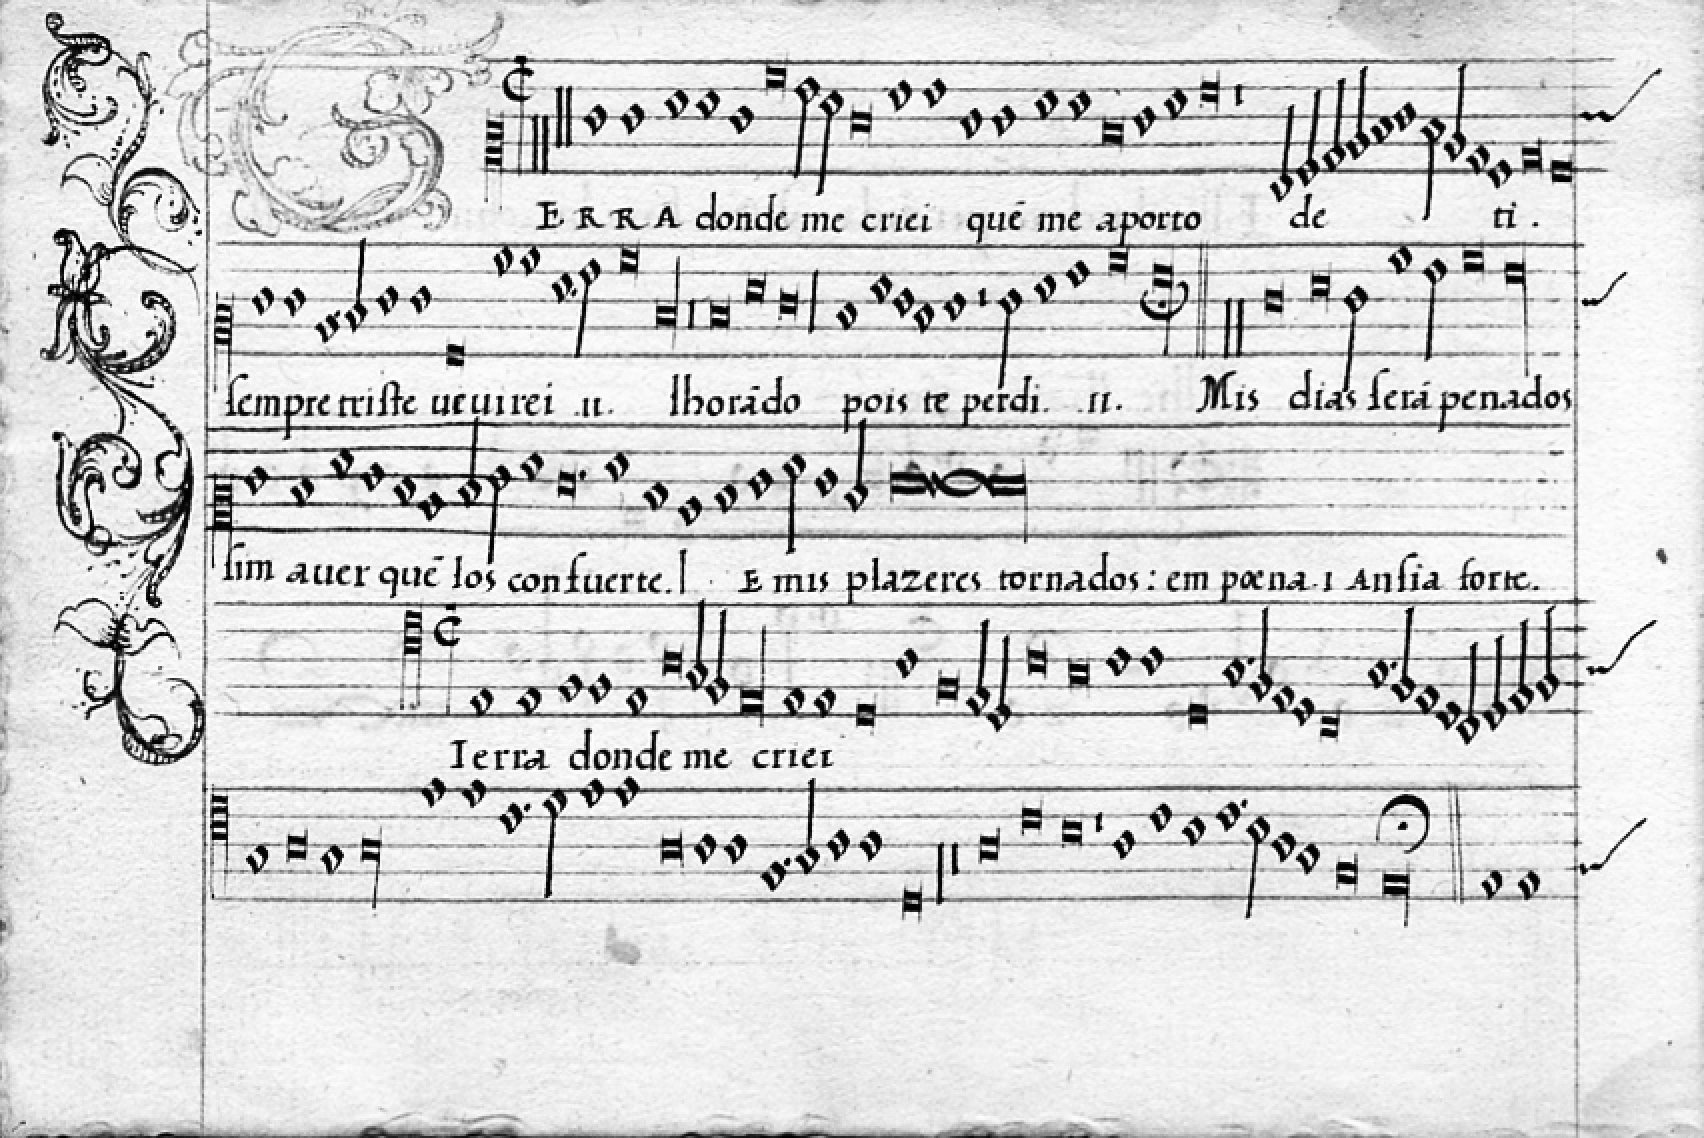 TERRA donde me criei quē me aporto de ti.
sempre triste ueuirei .ii. lhorādo pois te perdi. .ii. Mis dias serā penados
sim auer quē los consuerte. E mis plazeres tornados: em pœna i Ansia forte.
Terra donde me criei